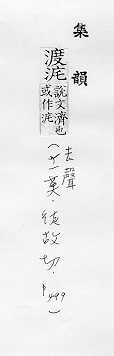 集韻
渡㳿
說文濟也
或作㳿
(去聲
十一莫‧徒故切‧
p499)